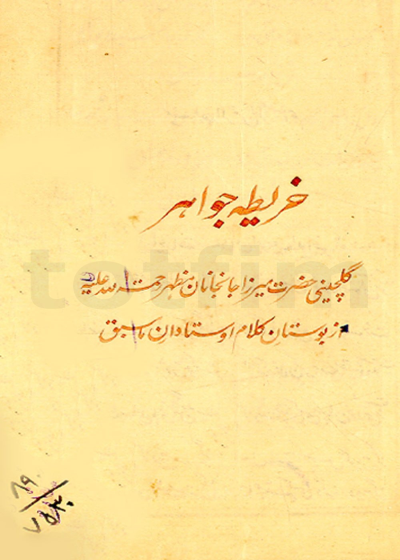 خریطه جواهر
گلچینی حضرت میرزا جانجانان مظهر رحمة الله علیه
از بوستان کلام اوستادان ماسبق
totfim